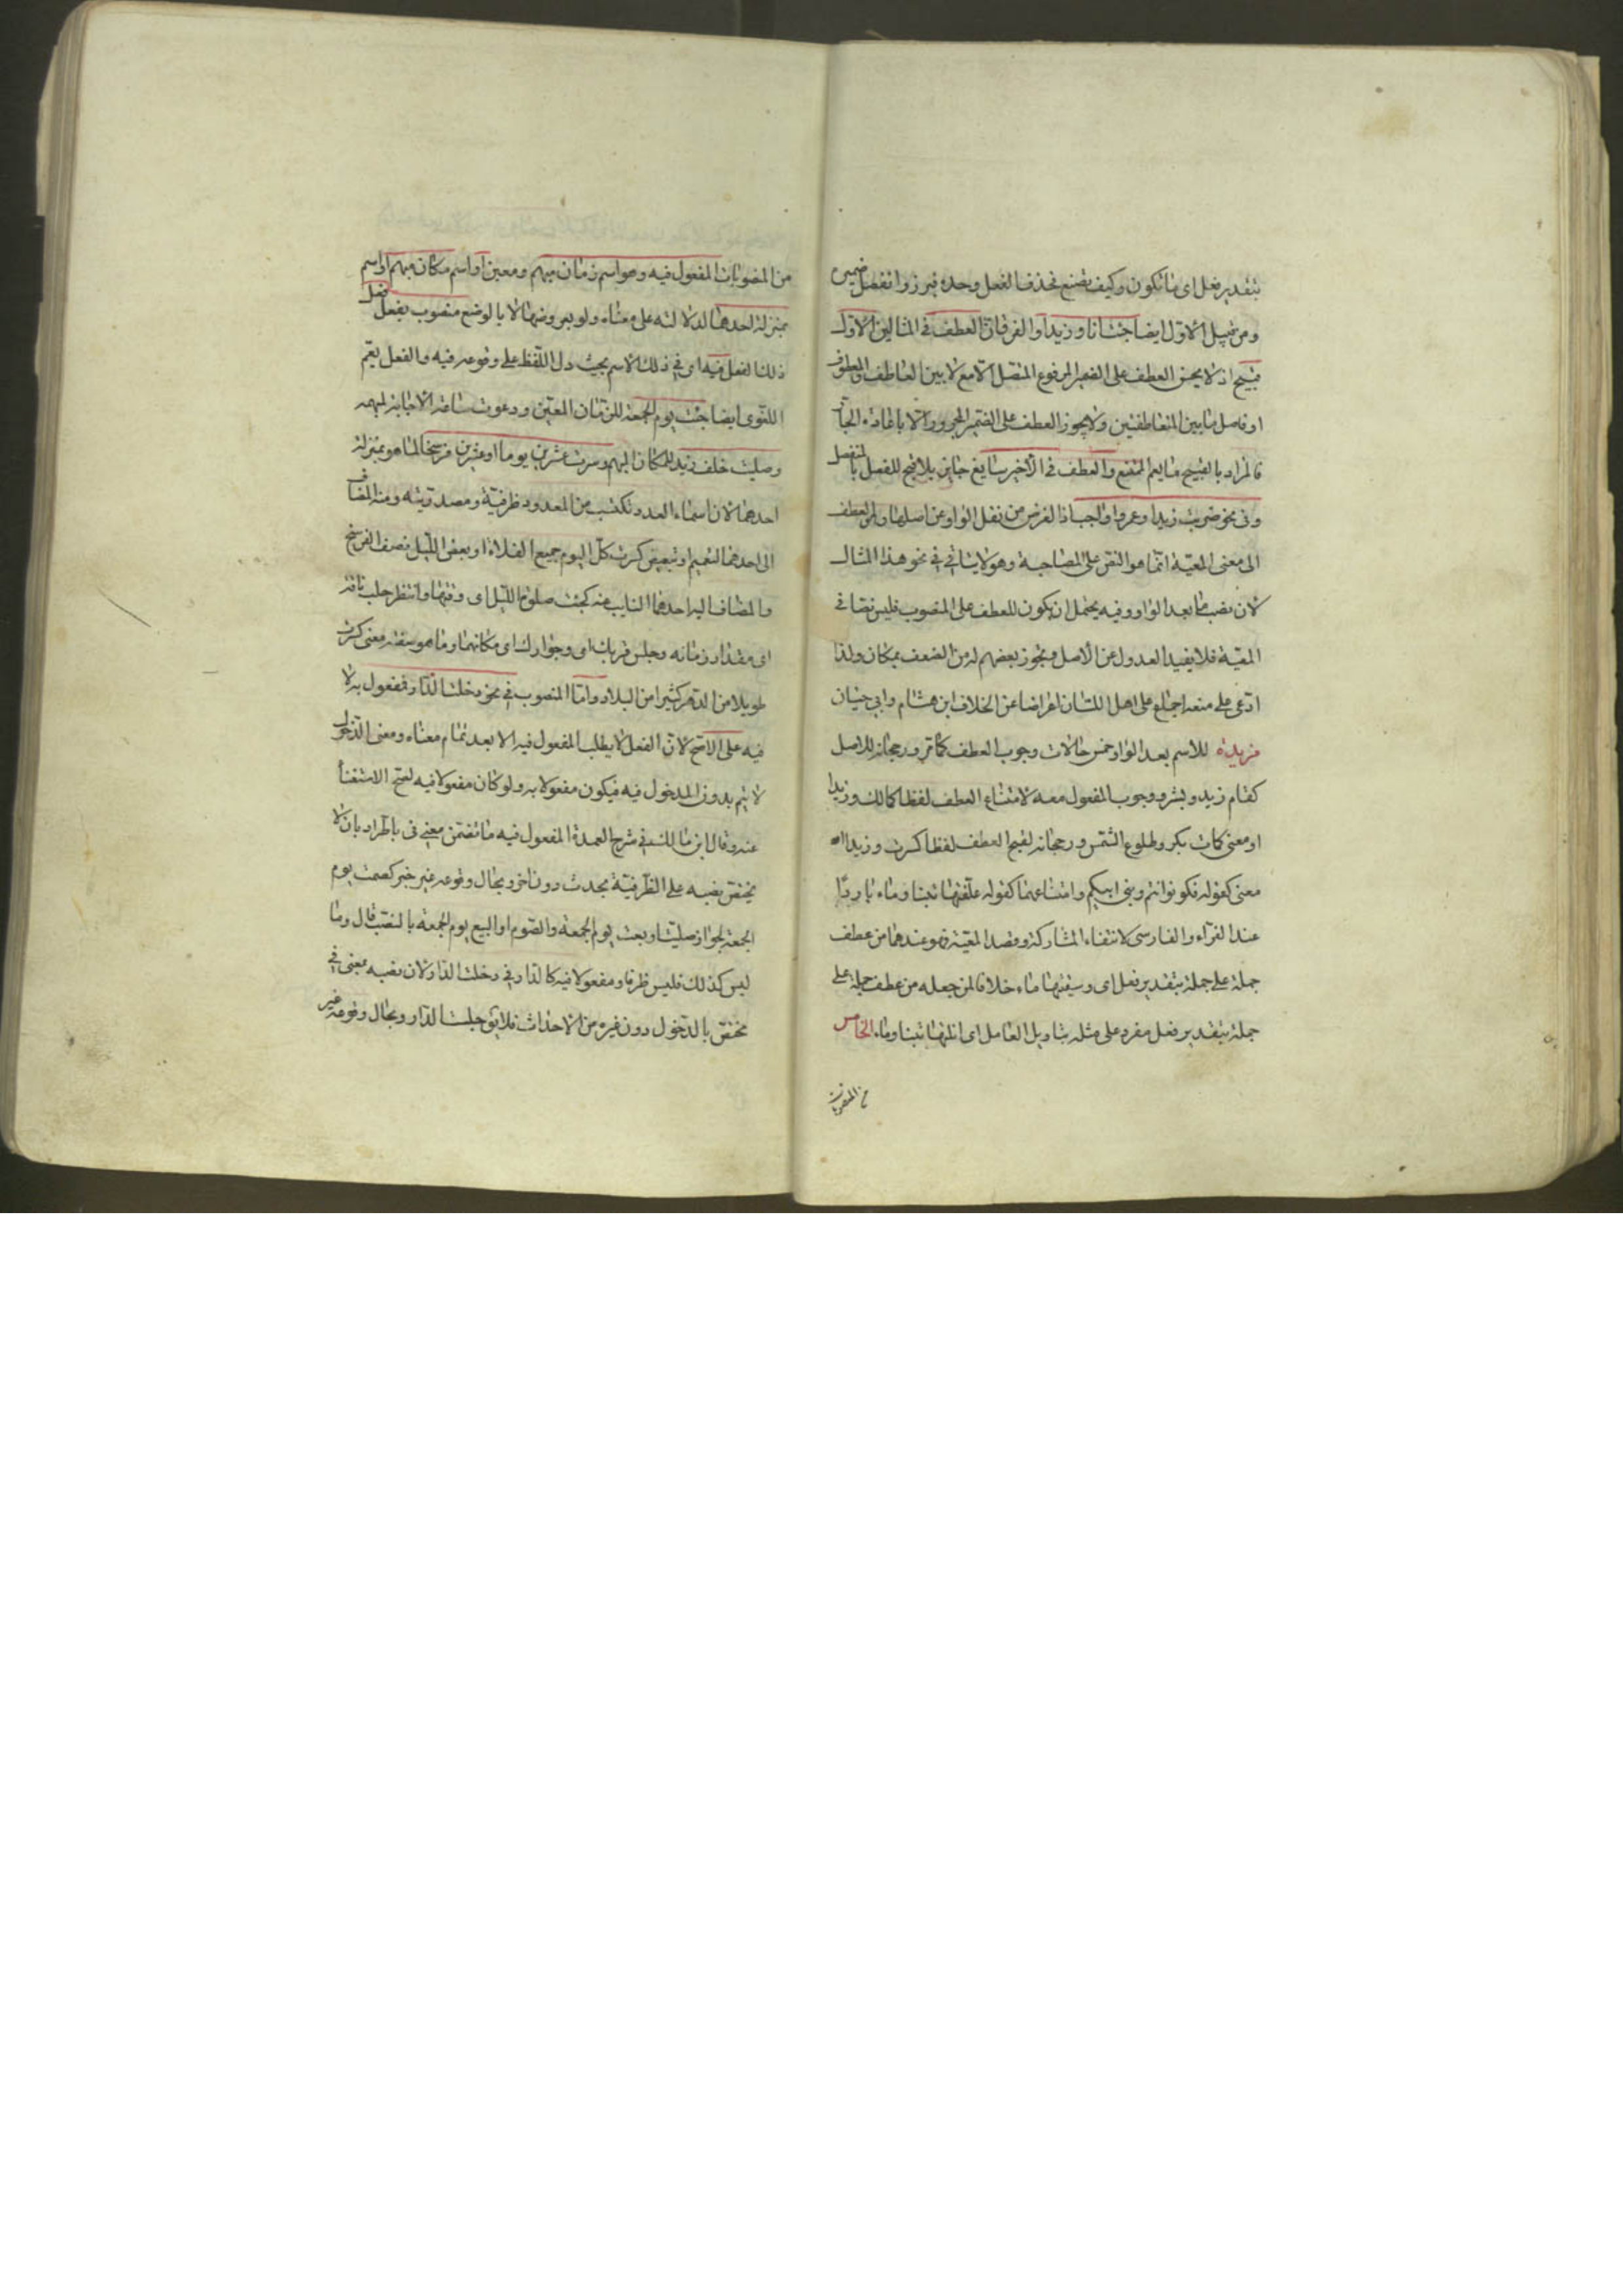 بتقدير فعل اى ما تكون وكيف تصنع فحذف الفعل وحده فبرز وانفصل ضميره
ومن قبيل الاوّل ايضا جئت انا وزيدا والفرق ان العطف فى المثالين الاوّلـ
قبيح اذ لا يحسن العطف على الضمير المرفوع المتصل الا مع لا بين العاطف والمعطوف
او فاصل ما بين المتعاطفتين ولا يجوز العطف على الضمير المجرور الا باعادة الجارّ
فالمراد بالقبيح ما يعم الممتنع والعطف فى الاخير سايغ جايز بلا قبح للفصل بالمنفصل
وفى نحو ضربت زيدا وعمروا واجب اذ الغرض من نقل الواو عن اصلها وهى العطف
الى معنى المعيّة انّما هو النص على المصاحبة وهو لا يتاتى فى نحو هذا المثالـ
لان نصب ما بعد الواو وفيه يحتمل ان يكون للعطف على المنصوب فليس نصا فى
المعيّة فلا يفيد العدول عن الاصل وتجوز بعضهم له من الضعف بمكان ولذا
ادّعى على منعه اجماع على اهل اللسان اعراضا عن الخلاف ابن هشام وابى حيّان
مزيدة للاسم بعد الواو خمس حالات وجوب العطف كما مرّ ورجحانه للاصل
كقام زيد وبشر ووجوب المفعول معه لامتناع العطف لفظا كمالك وزيدا
او معنى كمات بكر وطلوع الشمس ورجحانه لقبح العطف لفظا كسرت وزيدا او
معنى كقوله فكونوا انتم وبنى ابيكم وامتناعهما كقوله علّفتها تبنا وماء باردًا
عند الفرّاء والفارسى لانتفاء المشاركة وقصد المعيّة فهو عندهما من عطف
جملة على جملة بتقدير فعل اى وسقيتها ماء خلافا لمن جعله من عطف جملة على
جملة بتقدير فعل مفرد على مثله بتاويل العامل اى انلتها تبنا وماء الخامس
من المنصوبات
من المنصوبات المفعول فيه وهو اسم زمان مبهم ومعين او اسم مكان مبهم او اسم
بمنزلة احدهما لدلالته على معناه ولو بعروضها لا بالوضع منصوب بفعل فعل
ذلك الفعل فيه اى فى ذلك الاسم بحيث دل اللّفظ على وقوعه فيه والفعل يعمّ
اللغوى ايضا جئت يوم الجمعة للزمان المعيّن ودعوت ساعة الاجابة لمبهمه
وصليت خلف زيد للمكان المبهم وسرت عشرين يوما او عشرين فرسخا لما هو بمنزلة
احدهما لان اسماء العدد تكتسب من المعدود ظرفيّة ومصدريّته ومنه المضاف
الى احدهما لتعميم او تبعيض كسرت كلّ اليوم جميع الفلاة او بعض اللّيل نصف الفرسخ
والمضاف اليه احدهما النايب عنه كجئت صلوة اللّيل اى وقتها وانتظر حلب ناقة
اى مقدار زمانه وجلس قربك اى وجوارك اى مكانهما وما هو صفته معنى كسرت
طويلا من الدهر كثيرا من البلاد وامّا المنصوب فى نحو دخلت الدّار فمفعول به لا
فيه على الاصح لان الفعل لا يطلب المفعول فيه الا بعد تمام معناه ومعنى الدّخول
لا يتم بدون المدخول فيه فيكون مفعولا به ولو كان مفعولا فيه لصحّ الاستغنأ
عنه وقال ابن مالك فى شرح العمدة المفعول فيه ما تضمّن معنى فى باطّراد بان لا
يختصّ نصبه على الظّرفيّة بحدث دون اخر وبحال وقوعه غير خبر كصمت يوم
الجمعة لجواز صليت وبعت يوم الجمعة والصّوم او البيع يوم الجمعة بالنصب قال وما
ليس كذلك فليس ظرفا ومفعولا فيه كالدّار فى دخلت الدّار لان نصبه بمعنى فى
مختصّ بالدّخول دون غيره من الاحداث فلا يقّ جلست الدّار وبحال وقوعه غير